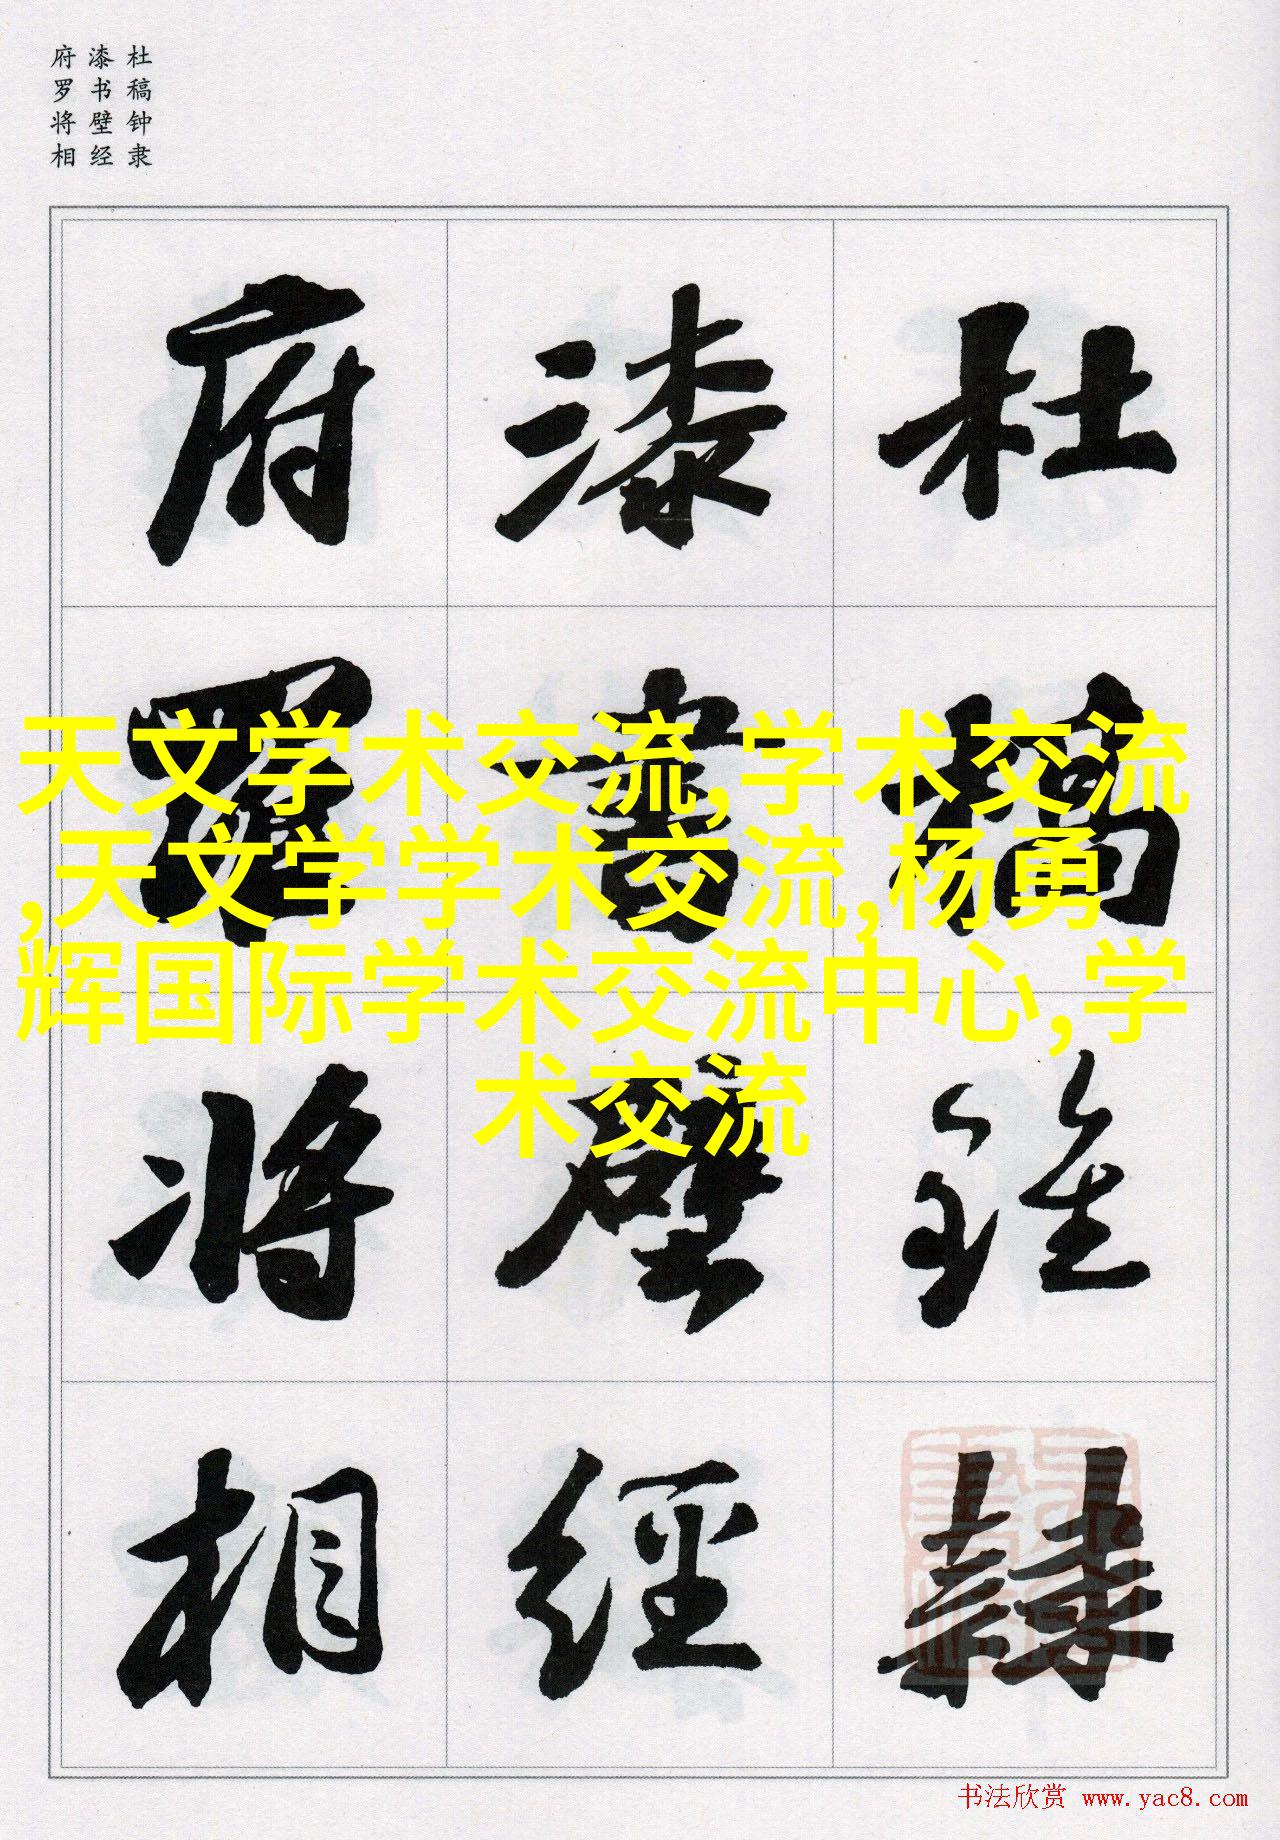 杜稿钟隶
漆书壁经
府罗将相
杜稾鍾隸
漆書壁經
府羅將相
天文学术交流,学术交流
,天文学学术交流,杨勇
辉国际学术交流中心,学
术交流
书法欣赏 www.yac8.com